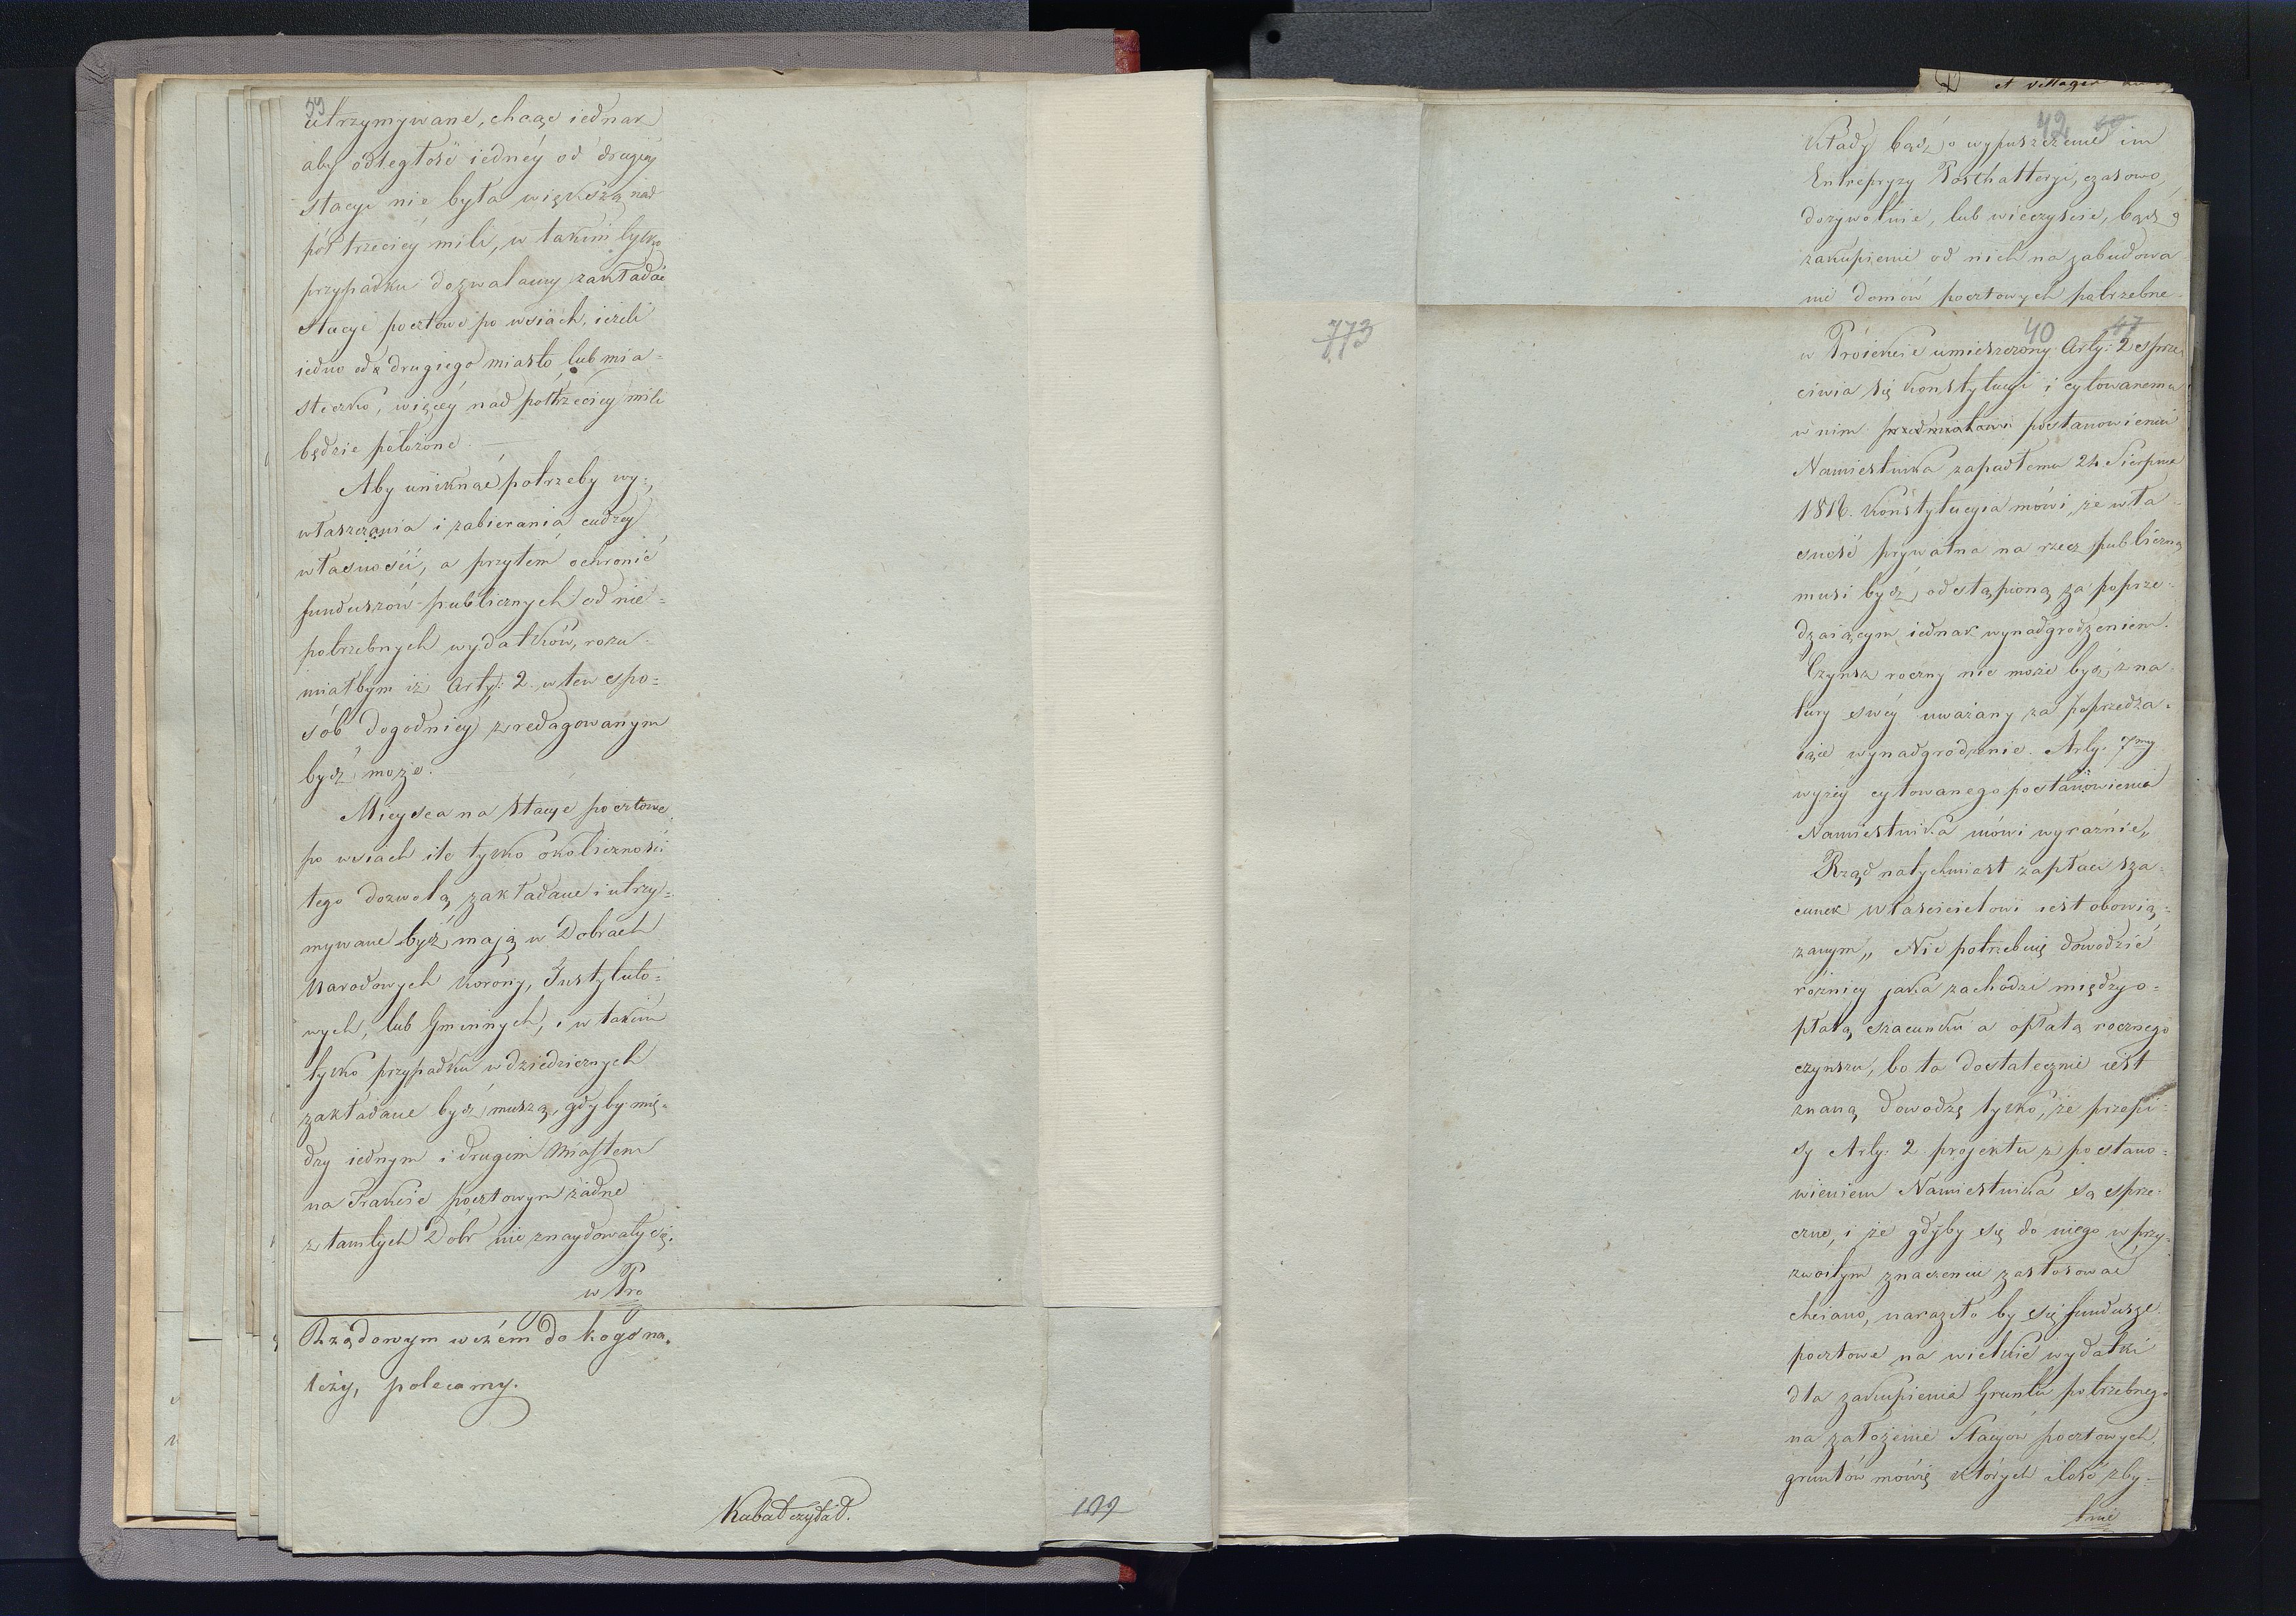 39
utrzymywane, chcąc iednak
aby odległość iednéy od drugiéy
stacyi nie była większą nad
pół trzeciey mili, w takim tylko
przypadku dozwalamy zakładać
Stacyie pocztowe po wsiach, ieżeli
iedno od drugiego miasto, lub mia=
steczko, więcéy nad półtrzeciey mili
będzie położone.
Aby uniknąć potrzeby wy=
właszczania i zabierania cudzey
własności, a przytem ochronić
funduszów publicznych od nie=
potrzebnych wydatków, rozu=
miałbym iż Arty: 2. w ten spo=
sób dogodniey zredagowanym
bydź może.
Mieysca na stacye pocztowe
po wsiach ile tylko okoliczności
tego dozwolą, zakładane i utrzy=
mywane bydź mają w Dobrach
Narodowych Korony, Instytuto=
wych, lub Gminnych, i w takim
tylko przypadku w dziedzicznych
zakładane bydź muszą, gdyby mię=
dzy iednym i drugim Miastem
na Trakcie pocztowym żadne
z tamtych Dobr nie znaydowały się.
w Pro
Rządowym w czém do kogo na=
leży, polecamy.
Kubał czytał.
199
et villages
42
kłady bądź o wypuszczenie im
Entrepryzy Poszthalteryi, czasowo,
dożywotnie, lub wieczyście, bądź o
zakupienie od nich na zabudowa=
nie domów pocztowych potrzebne
773
40 47
w Proiekcie umieszczony Arty: 2 sprze=
ciwia się konstytucyi i cytowanemu
w nim postanowieniu
Namiestnika zapadłemu 24 Sierpnia
1816. Konstytucyia mówi, że wła=
sność prywatna na rzecz publiczną
musi bydź odstąpioną za poprze=
dzaiącym iednak wynadgrodzeniem.
Czynsz roczny nie może bydź z na=
tury swéy uważany za poprzedza=
iące wynadgrodzenie. Arty: 7my
wyżéy cytowanego postanowienia
Namiestnika mówi wyraźnie„
Rząd natychmiast zapłacić sza=
cunek właścicielowi iest obowią=
zanym„ Nie potrzebuię dowodzić
różnicy jaka zachodzi między o=
płatą szacunku a opłatą rocznego
czynszu, bo ta dostatecznie iest
znaną, dowodzę tylko, że przepi=
sy Arty: 2 projektu z postano=
wieniem Namiestnika są sprze=
czne, i że gdyby się do niego w przy=
zwoitym znaczeniu zastosować
chciano, naraziło by się fundusze
pocztowe na wielkie wydatki
dla zakupienia Gruntu potrzebnego
na założenie Stacyów pocztowych,
gruntów mówię których ilość zby=
tnie